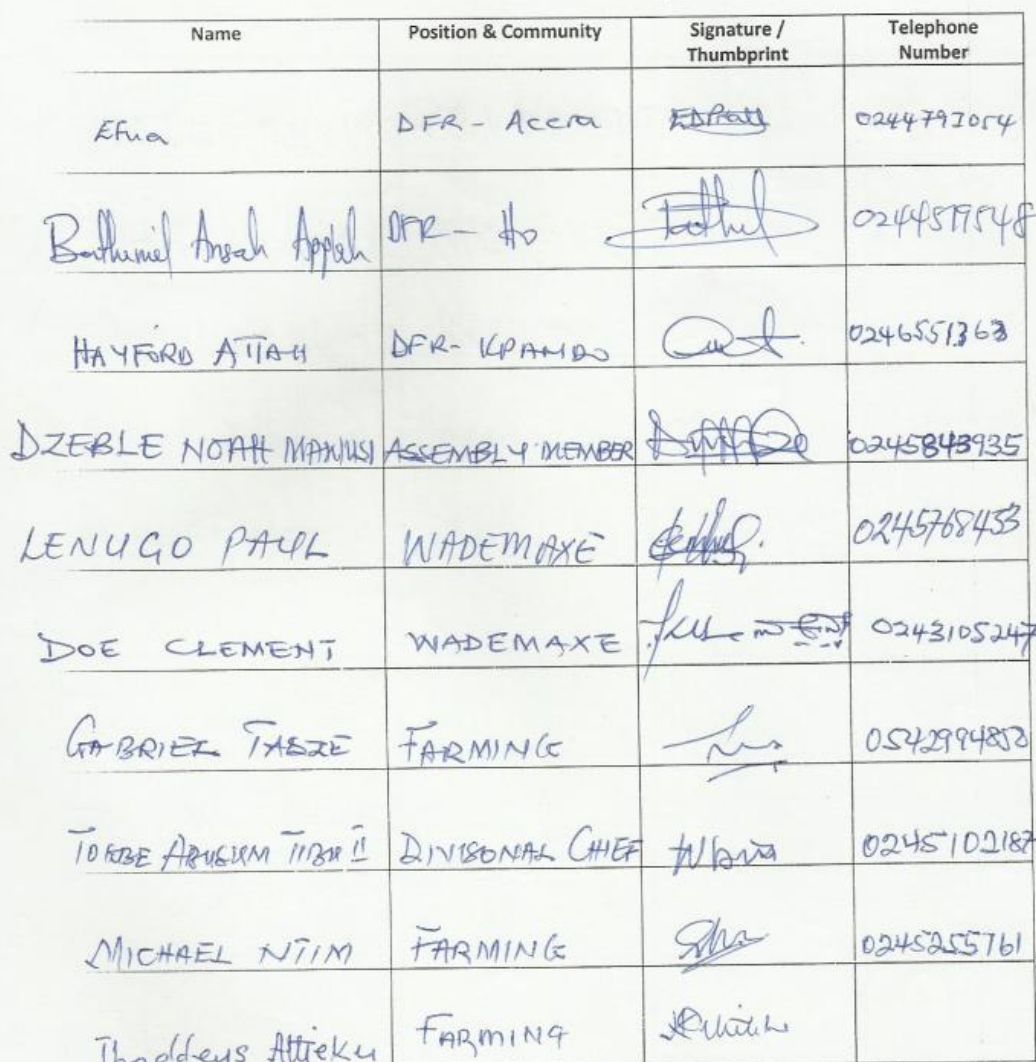 Name Position & Community Signature / Thumbprint Telephone Number
Efua DFR - Accra 0244793054
Ansah Appiah DFR - Ho 0244519548
HAYFORD ATTAH DFR - KPANDO 0246551363
DZEBLE NOAH ASSEMBLY MEMBER 0245843935
LENUGO PAUL WADEMAXE 0245768453
DOE CLEMENT WADEMAXE 0243105247
GABRIEL FARMING
DIVISONAL CHIEF 0245102187
MICHAEL NTIM FARMING 0245255761
Thaddeus Attieku FARMING